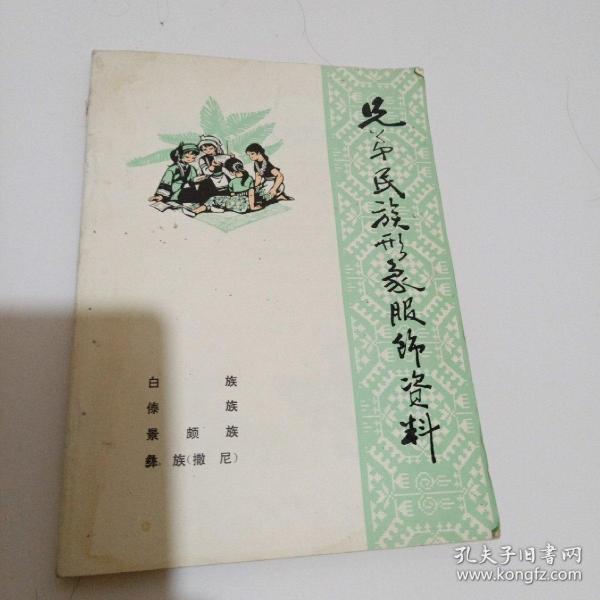 兄弟民族形象服饰资料
白 族
傣 族
景 颇 族
彝 族(撒 尼)
孔夫子旧书网
www.kongfz.com